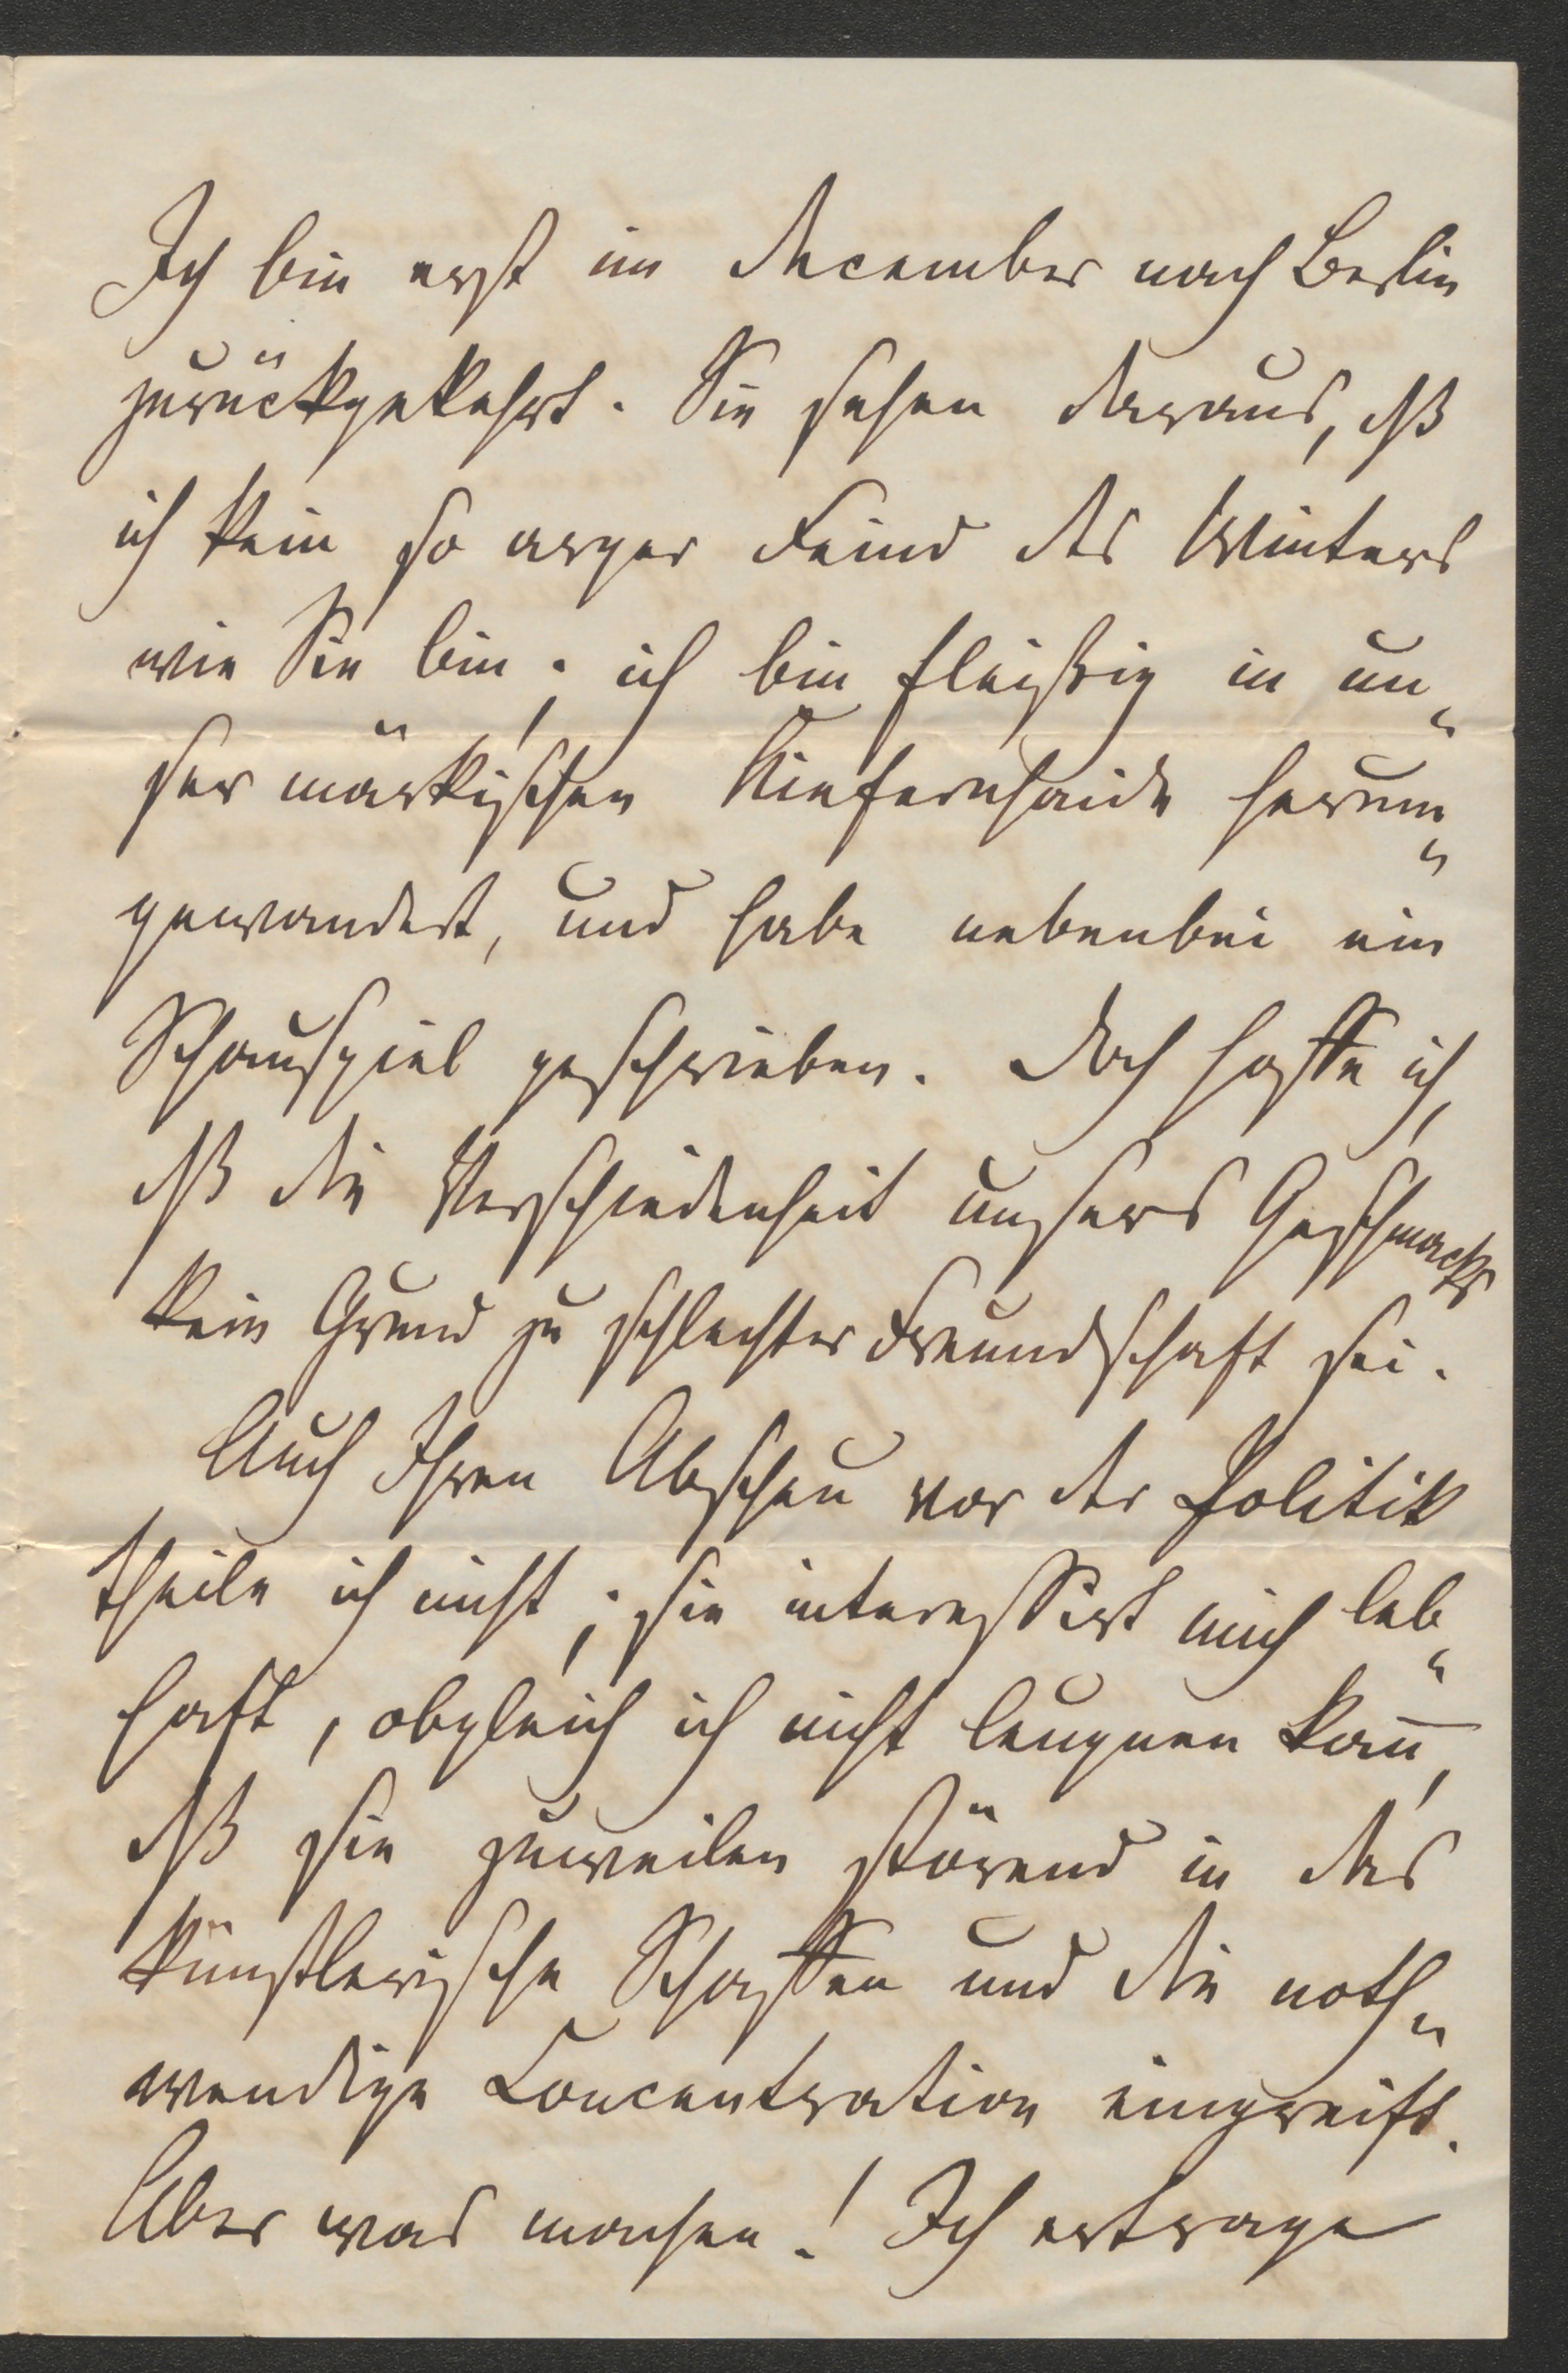 Ich bin erst im December nach Berlin
zurückgekehrt. Sie sehen daraus, dß
ich kein so arger Feind des Winters
wie Sie bin; ich bin fleißig in un-
ser märkischen Kiefernhaide herum-
gewandert, und habe nebenbei ein
Schauspiel geschrieben. Doch hoffe ich,
dß die Verschiedenheit unsers Geschmacks
kein Grund zu schlechter Freundschaft sei.
Auch Ihren Abscheu vor der Politik
theile ich nicht; sie interessirt mich leb-
haft, obgleich ich nicht leugnen kan̄,
dß sie zuweilen störend in das
künstlerische Schaffen und die noth-
wendige Concentration eingreift.
Aber was machen! Ich ertrage